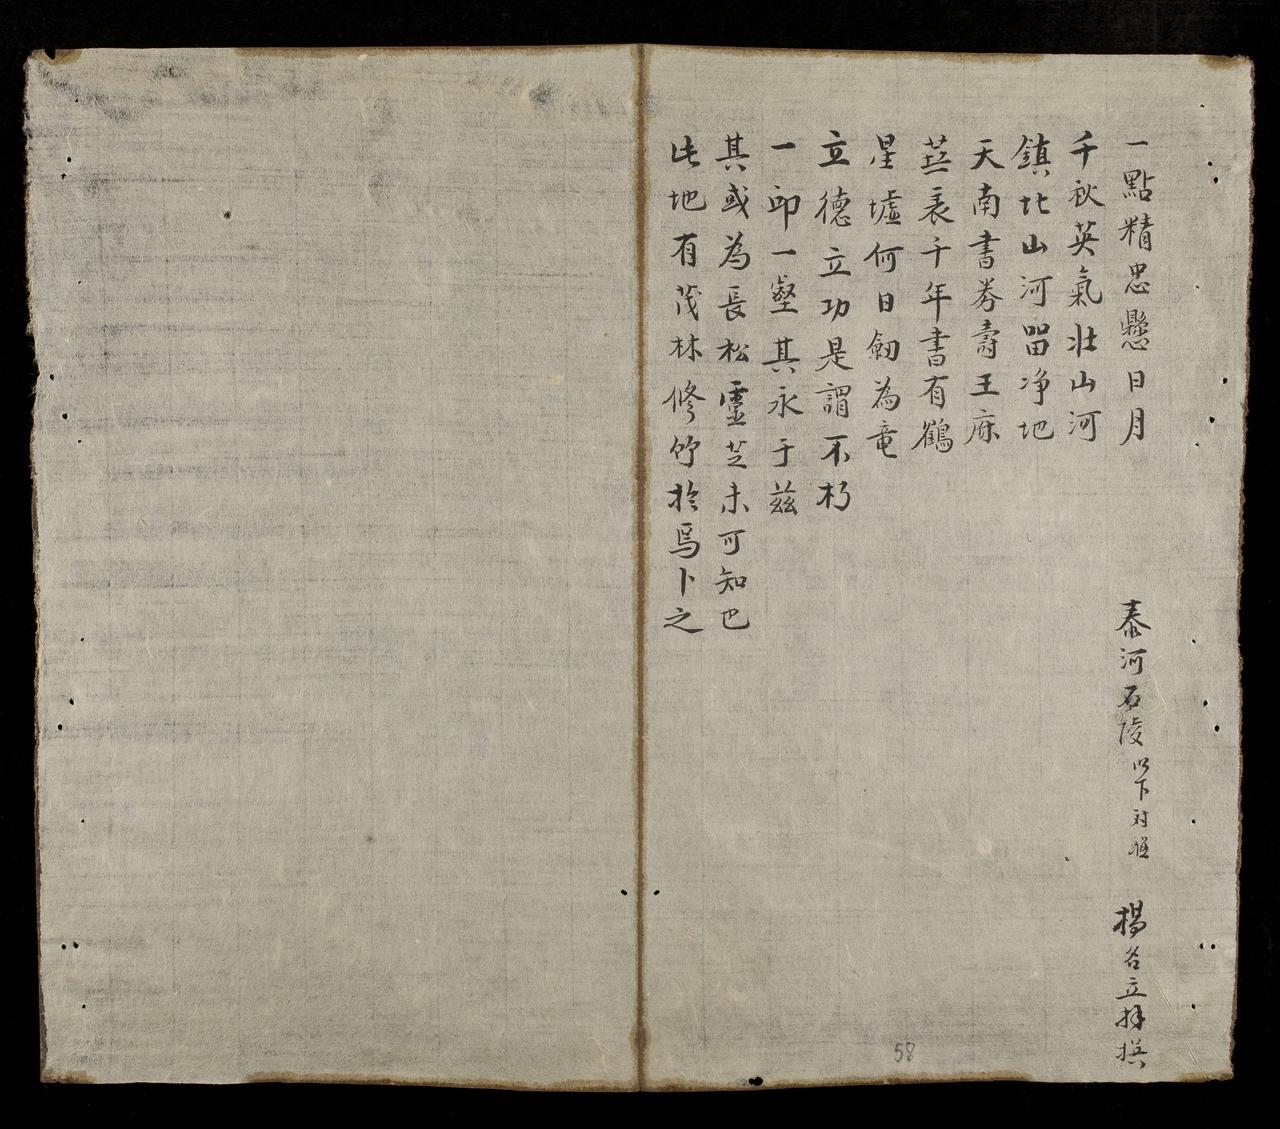 一點精忠懸日月
泰河石陵以下对聯
楊名立拜撰
千秋英氣壯山河
鎮北山河留净地
天南書券壽王庥
表千年書有鶴
星墟何日劒為竜
立德立功是謂不朽
一邱一壑其永于茲
其或為長松靈芝未可知也
此地有茂林修竹於焉卜之
58